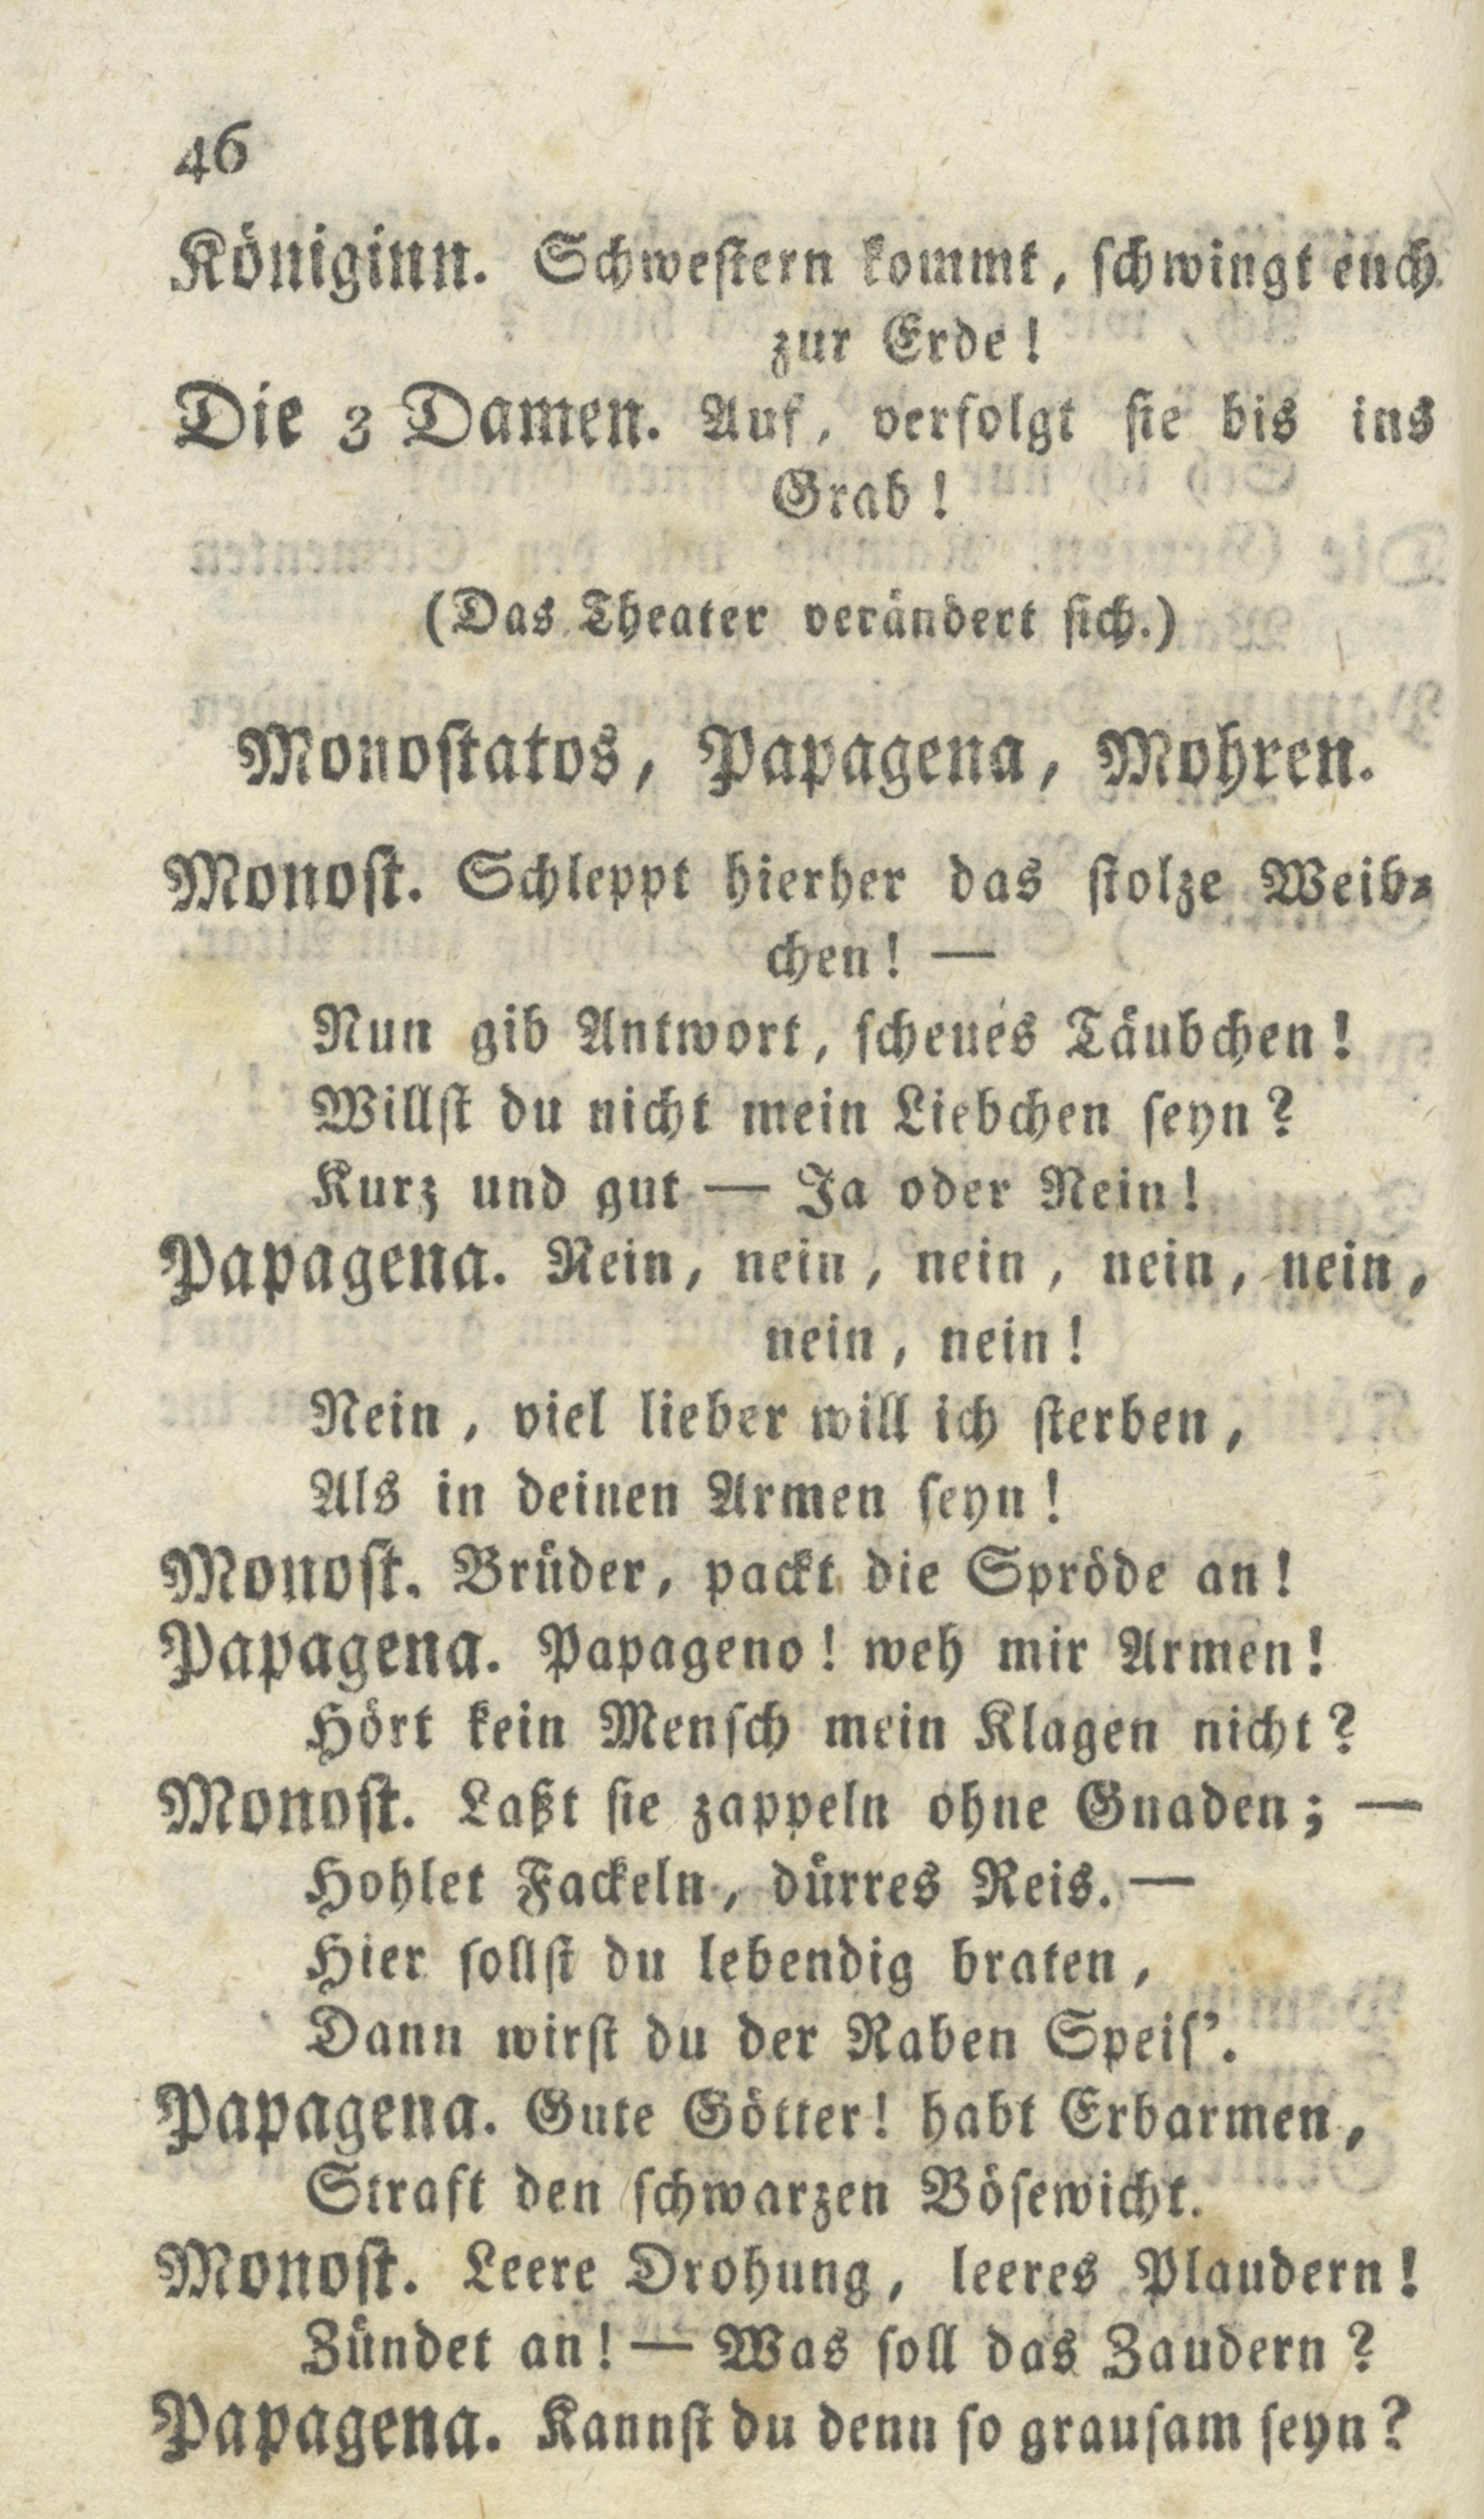 46
Königinn. Schwestern kommt, schwingt euch
zur Erde!
Die 3 Damen. Auf, verfolgt sie bis ins
Grab!
(Das Theater verändert sich.)
Monostatos, Papagena, Mohren.
Monost. Schleppt hierher das stolze Weib-
chen! —
Nun gib Antwort, scheues Täubchen!
Willst du nicht mein Liebchen seyn?
Kurz und gut — Ja oder Nein!
Papagena. Nein, nein, nein, nein, nein,
nein, nein!
Nein, viel lieber will ich sterben,
Als in deinen Armen seyn!
Monost. Brüder, packt die Spröde an!
Papagena. Papageno! weh mir Armen!
Hört kein Mensch mein Klagen nicht?
Monost. Laßt sie zappeln ohne Gnaden; —
Hohlet Fackeln, dürres Reis. —
Hier sollst du lebendig braten,
Dann wirst du der Raben Speis'.
Papagena. Gute Götter! habt Erbarmen,
Straft den schwarzen Bösewicht.
Monost. Leere Drohung, leeres Plaudern!
Zündet an! — Was soll das Zaudern?
Papagena. Kannst du denn so grausam seyn?